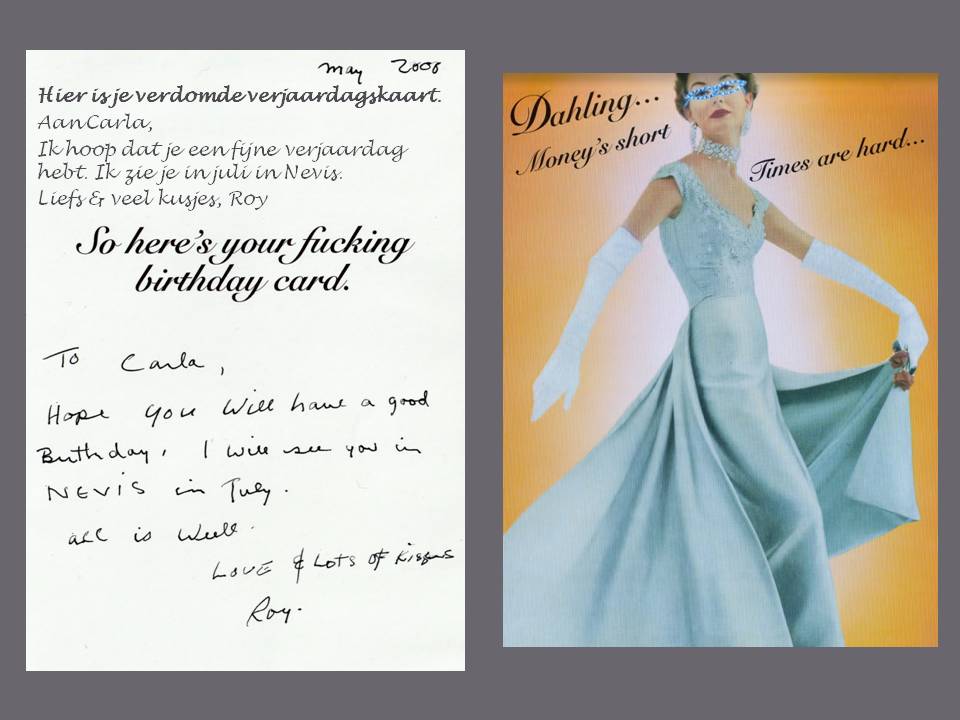 may 2008
Hier is je verdomde verjaardagskaart.
Aan Carla,
Ik hoop dat je een fijne verjaardag
hebt. Ik zie je in juli in Nevis.
Liefs & veel kusjes, Roy
So here's your fucking
birthday card.
To Carla,
Hope you will have a good
Birthday, I will see you in
NEVIS in July.
all is well.
LOVE & LOTS OF Kisses
Roy.
Dahling...
Money's short
Times are hard...